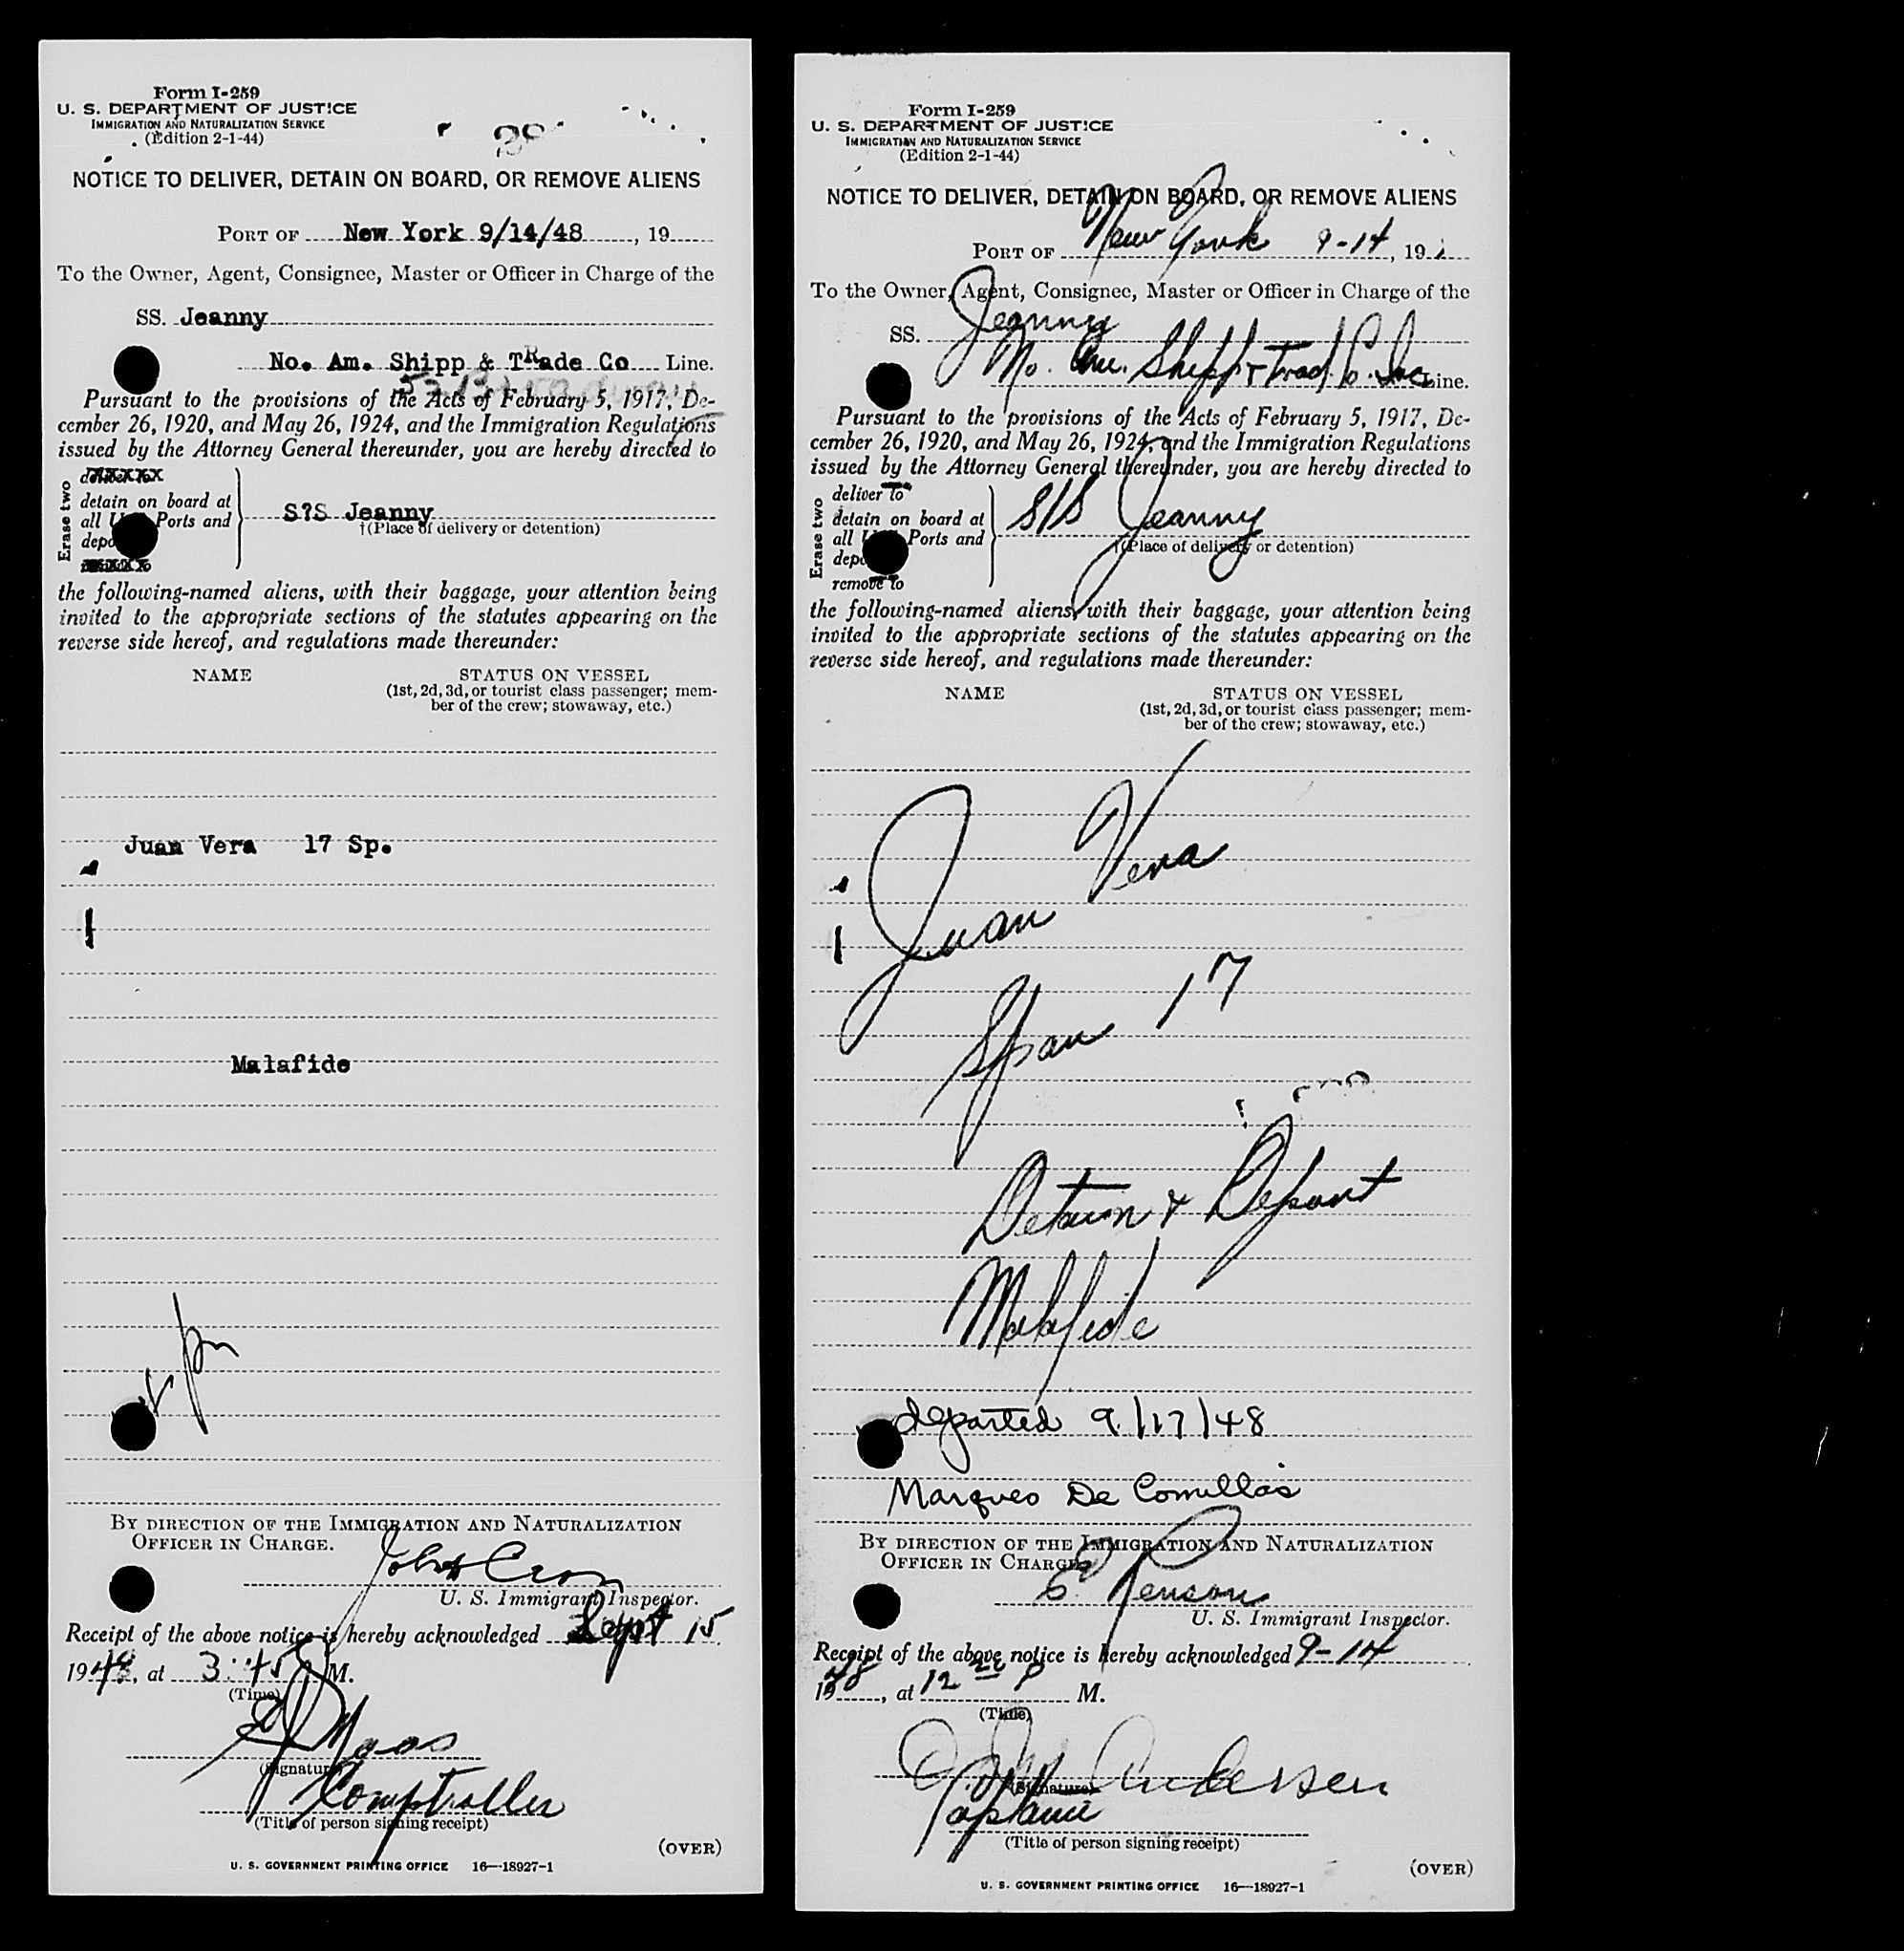 Form I-259
U. S. DEPARTMENT OF JUSTICE
IMMIGRATION AND NATURALIZATION SERVICE
(Edition 2-1-44)
NOTICE TO DELIVER, DETAIN ON BOARD, OR REMOVE ALIENS
PORT OF New York 9/14/48, 19
To the Owner, Agent, Consignee, Master or Officer in Charge of the
SS. Jeanny
No. Am. Shipp & TRade Co Line.
Pursuant to the provisions of the Acts of February 5, 1917, De-
cember 26, 1920, and May 26, 1924, and the Immigration Regulations
issued by the Attorney General thereunder, you are hereby directed to
Erase two
detain on board at
all Ports and
depo
S?S Jeanny
†(Place of delivery or detention)
the following-named aliens, with their baggage, your attention being
invited to the appropriate sections of the statutes appearing on the
reverse side hereof, and regulations made thereunder:
NAME STATUS ON VESSEL
(1st, 2d, 3d, or tourist class passenger; mem-
ber of the crew; stowaway, etc.)
Juan Vera 17 Sp.
Malafide
BY DIRECTION OF THE IMMIGRATION AND NATURALIZATION
OFFICER IN CHARGE.
U. S. Immigrant Inspector.
Receipt of the above notice is hereby acknowledged Sept 15
1948, at 3:45 M.
(Time)
(Signature)
Comptroller
(Title of person signing receipt)
(OVER)
U. S. GOVERNMENT PRINTING OFFICE 16—18927-1
Form I-259
U. S. DEPARTMENT OF JUSTICE
IMMIGRATION AND NATURALIZATION SERVICE
(Edition 2-1-44)
NOTICE TO DELIVER, DETAIN ON BOARD, OR REMOVE ALIENS
PORT OF New York 9-14, 19
To the Owner, Agent, Consignee, Master or Officer in Charge of the
SS. Jeanny
No. Am. Shipp & Trad. Co. Inc Line.
Pursuant to the provisions of the Acts of February 5, 1917, De-
cember 26, 1920, and May 26, 1924, and the Immigration Regulations
issued by the Attorney General thereunder, you are hereby directed to
Erase two
deliver to
detain on board at
all Ports and
depo
remove to
S/S Jeanny
†(Place of delivery or detention)
the following-named aliens, with their baggage, your attention being
invited to the appropriate sections of the statutes appearing on the
reverse side hereof, and regulations made thereunder:
NAME STATUS ON VESSEL
(1st, 2d, 3d, or tourist class passenger; mem-
ber of the crew; stowaway, etc.)
Juan Vera
Span 17
Detain & Deport
Malafide
departed 9/17/48
Marques De Comillas
BY DIRECTION OF THE IMMIGRATION AND NATURALIZATION
OFFICER IN CHARGE
U. S. Immigrant Inspector.
Receipt of the above notice is hereby acknowledged 9-14
1948, at 12 P M.
(Time)
Andersen
(Signature)
Captain
(Title of person signing receipt)
(OVER)
U. S. GOVERNMENT PRINTING OFFICE 16—18927-1